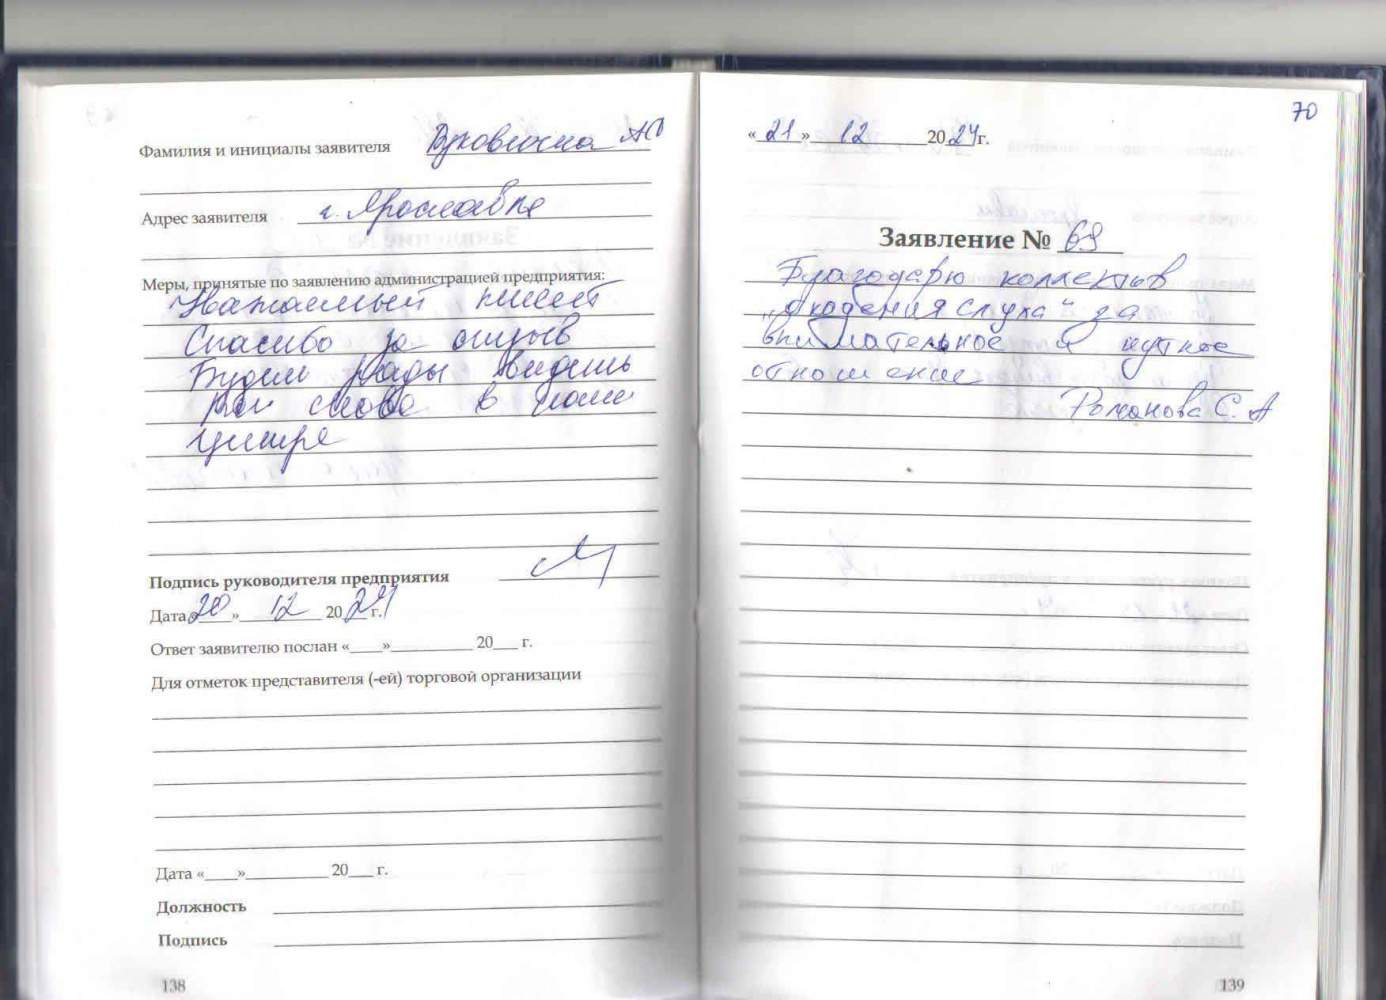 Фамилия и инициалы заявителя
Адрес заявителя г. Ярославль
Меры, принятые по заявлению администрацией предприятия:
Уважаемый клиент
Спасибо за отзыв
Будем рады видеть
Вас снова в нашем
центре
Подпись руководителя предприятия
Дата «20» 12 2024 г.
Ответ заявителю послан «____»__________ 20___ г.
Для отметок представителя (-ей) торговой организации
Дата «____»__________ 20___ г.
Должность
Подпись
138
70
«21» 12 2024г.
Заявление № 69
Благодарю коллектив
„Академия слуха" за
внимательное и чуткое
отношение
Романова С. А
139